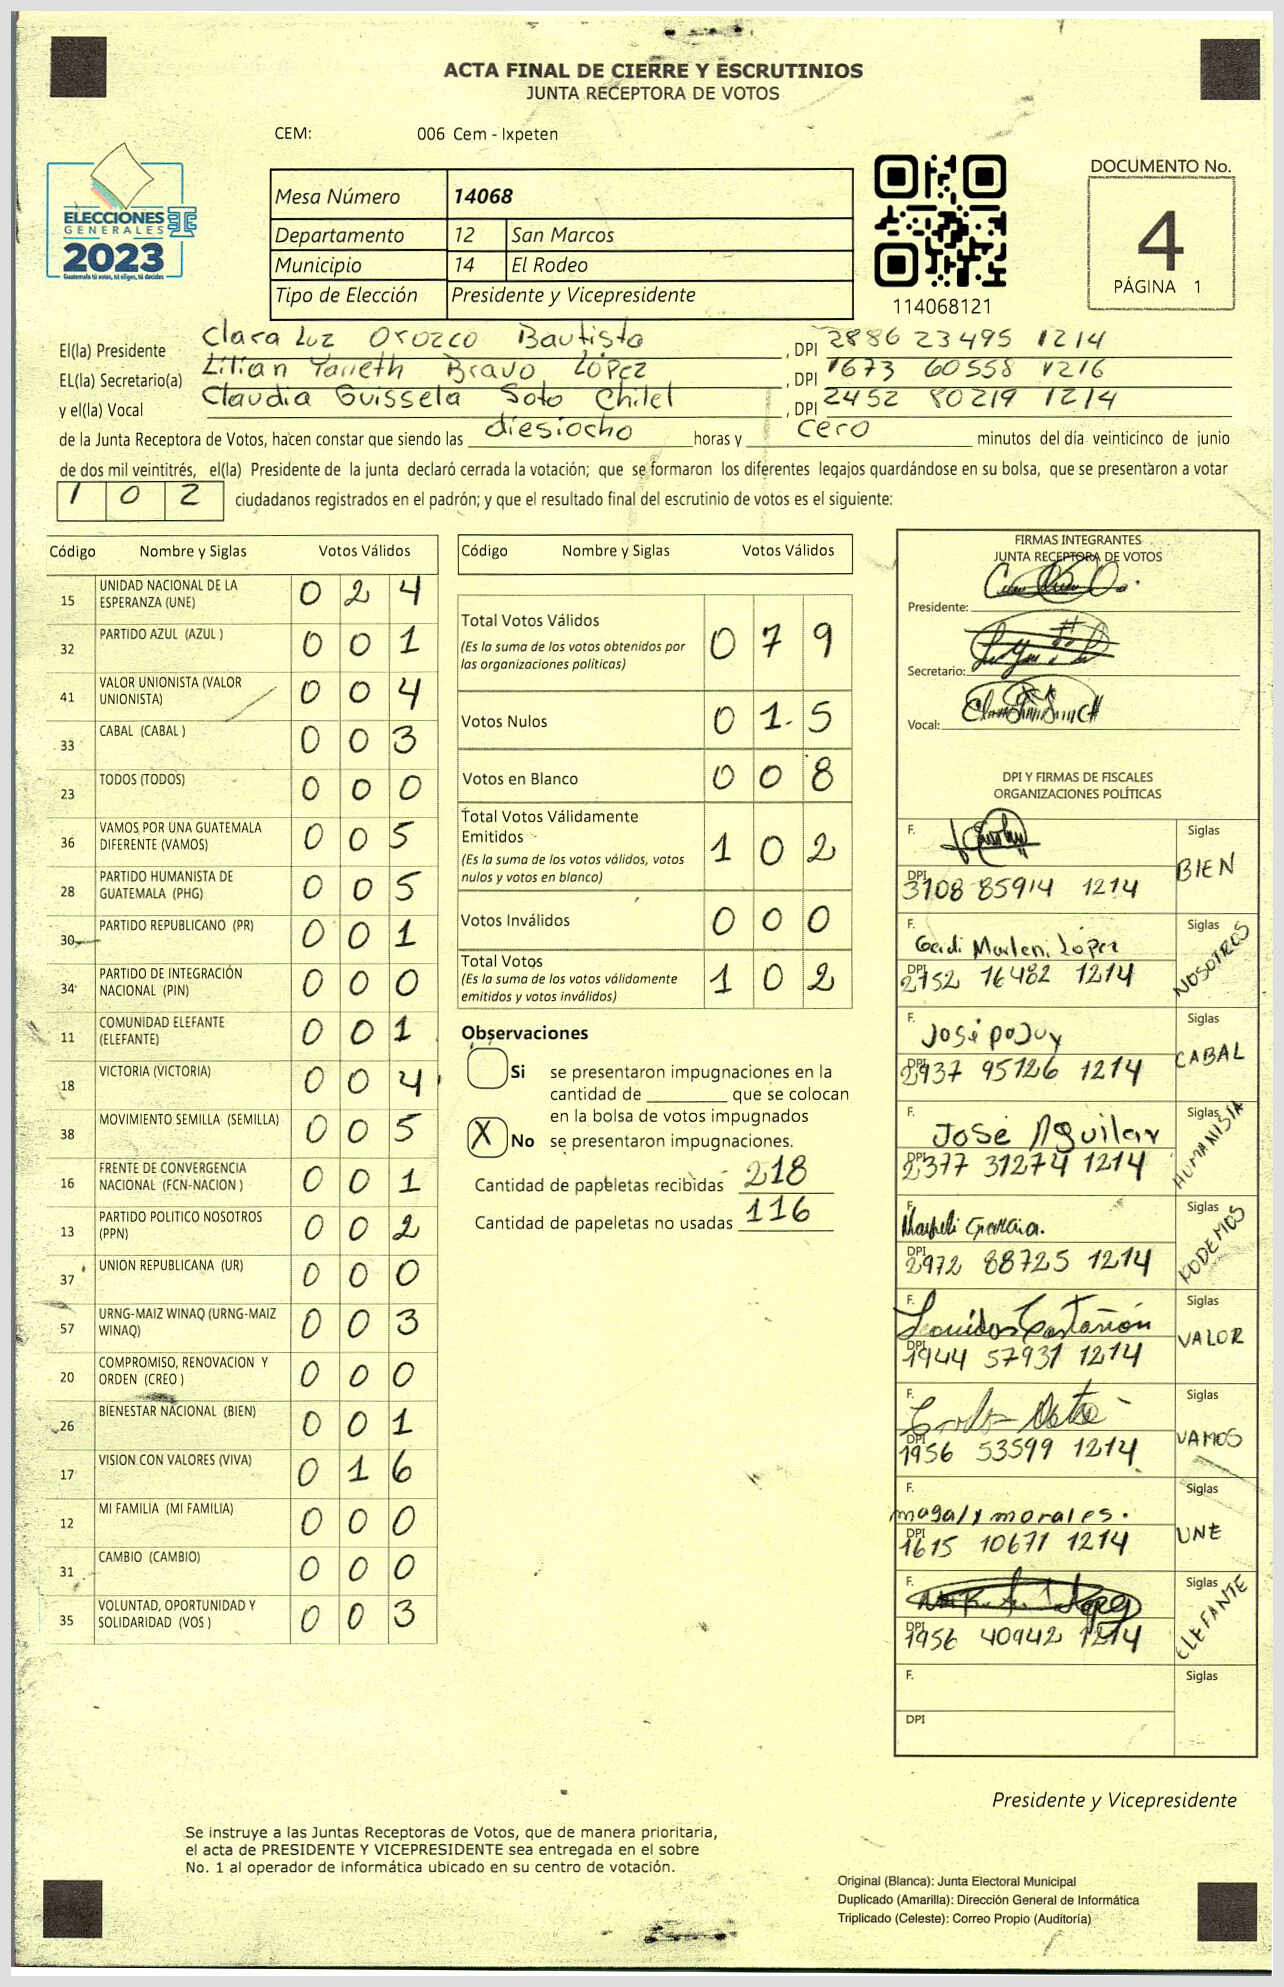 ACTA FINAL DE CIERRE Y ESCRUTINIOS
JUNTA RECEPTORA DE VOTOS
CEM: 006 Cem - Ixpeten
ELECCIONES
GENERALES
2023
Guatemala tú votas, tú eliges, tú decides
Mesa Número 14068
Departamento 12 San Marcos
Municipio 14 El Rodeo
Tipo de Elección Presidente y Vicepresidente
114068121
DOCUMENTO No.
4
PÁGINA 1
El(la) Presidente Clara Luz Orozco Bautista , DPI 2886 23495 1214
EL(la) Secretario(a) Lilian Yanneth Bravo López , DPI 1673 60558 1216
y el(la) Vocal Claudia Guissela Soto Chilel , DPI 2452 80219 1214
de la Junta Receptora de Votos, hacen constar que siendo las diesiocho horas y cero minutos del día veinticinco de junio
de dos mil veintitrés, el(la) Presidente de la junta declaró cerrada la votación; que se formaron los diferentes legajos guardándose en su bolsa, que se presentaron a votar
1 0 2 ciudadanos registrados en el padrón; y que el resultado final del escrutinio de votos es el siguiente:
Código Nombre y Siglas Votos Válidos
15 UNIDAD NACIONAL DE LA ESPERANZA (UNE) 0 2 4
32 PARTIDO AZUL (AZUL ) 0 0 1
41 VALOR UNIONISTA (VALOR UNIONISTA) 0 0 4
33 CABAL (CABAL ) 0 0 3
23 TODOS (TODOS) 0 0 0
36 VAMOS POR UNA GUATEMALA DIFERENTE (VAMOS) 0 0 5
28 PARTIDO HUMANISTA DE GUATEMALA (PHG) 0 0 5
30 PARTIDO REPUBLICANO (PR) 0 0 1
34 PARTIDO DE INTEGRACIÓN NACIONAL (PIN) 0 0 0
11 COMUNIDAD ELEFANTE (ELEFANTE) 0 0 1
18 VICTORIA (VICTORIA) 0 0 4
38 MOVIMIENTO SEMILLA (SEMILLA) 0 0 5
16 FRENTE DE CONVERGENCIA NACIONAL (FCN-NACION ) 0 0 1
13 PARTIDO POLITICO NOSOTROS (PPN) 0 0 2
37 UNION REPUBLICANA (UR) 0 0 0
57 URNG-MAIZ WINAQ (URNG-MAIZ WINAQ) 0 0 3
20 COMPROMISO, RENOVACION Y ORDEN (CREO ) 0 0 0
26 BIENESTAR NACIONAL (BIEN) 0 0 1
17 VISION CON VALORES (VIVA) 0 1 6
12 MI FAMILIA (MI FAMILIA) 0 0 0
31 CAMBIO (CAMBIO) 0 0 0
35 VOLUNTAD, OPORTUNIDAD Y SOLIDARIDAD (VOS ) 0 0 3
Código Nombre y Siglas Votos Válidos
Total Votos Válidos 0 7 9
(Es la suma de los votos obtenidos por
las organizaciones políticas)
Votos Nulos 0 1 5
Votos en Blanco 0 0 8
Total Votos Válidamente
Emitidos 1 0 2
(Es la suma de los votos válidos, votos
nulos y votos en blanco)
Votos Inválidos 0 0 0
Total Votos 1 0 2
(Es la suma de los votos válidamente
emitidos y votos inválidos)
Observaciones
Si se presentaron impugnaciones en la
cantidad de ________ que se colocan
en la bolsa de votos impugnados
X No se presentaron impugnaciones.
Cantidad de papeletas recibidas 218
Cantidad de papeletas no usadas 116
FIRMAS INTEGRANTES
JUNTA RECEPTORA DE VOTOS
Presidente:
Secretario:
Vocal:
DPI Y FIRMAS DE FISCALES
ORGANIZACIONES POLÍTICAS
F. Siglas
BIEN
DPI 3108 85914 1214
F. Siglas
Marleni López NOSOTROS
DPI 2752 16482 1214
F. Siglas
José CABAL
DPI 2937 95126 1214
F. Siglas
José Aguilar HUMANISTA
DPI 2377 31274 1214
F. Siglas
PODEMOS
DPI 2972 88725 1214
F. Siglas
Leonidas Castañón VALOR
DPI 1944 57931 1214
F. Siglas
VAMOS
DPI 1956 53599 1214
F. Siglas
magaly morales. UNE
DPI 1615 10671 1214
F. Siglas
ELEFANTE
DPI 1956 40942 1214
F. Siglas
DPI
Presidente y Vicepresidente
Se instruye a las Juntas Receptoras de Votos, que de manera prioritaria,
el acta de PRESIDENTE Y VICEPRESIDENTE sea entregada en el sobre
No. 1 al operador de informática ubicado en su centro de votación.
Original (Blanca): Junta Electoral Municipal
Duplicado (Amarilla): Dirección General de Informática
Triplicado (Celeste): Correo Propio (Auditoría)